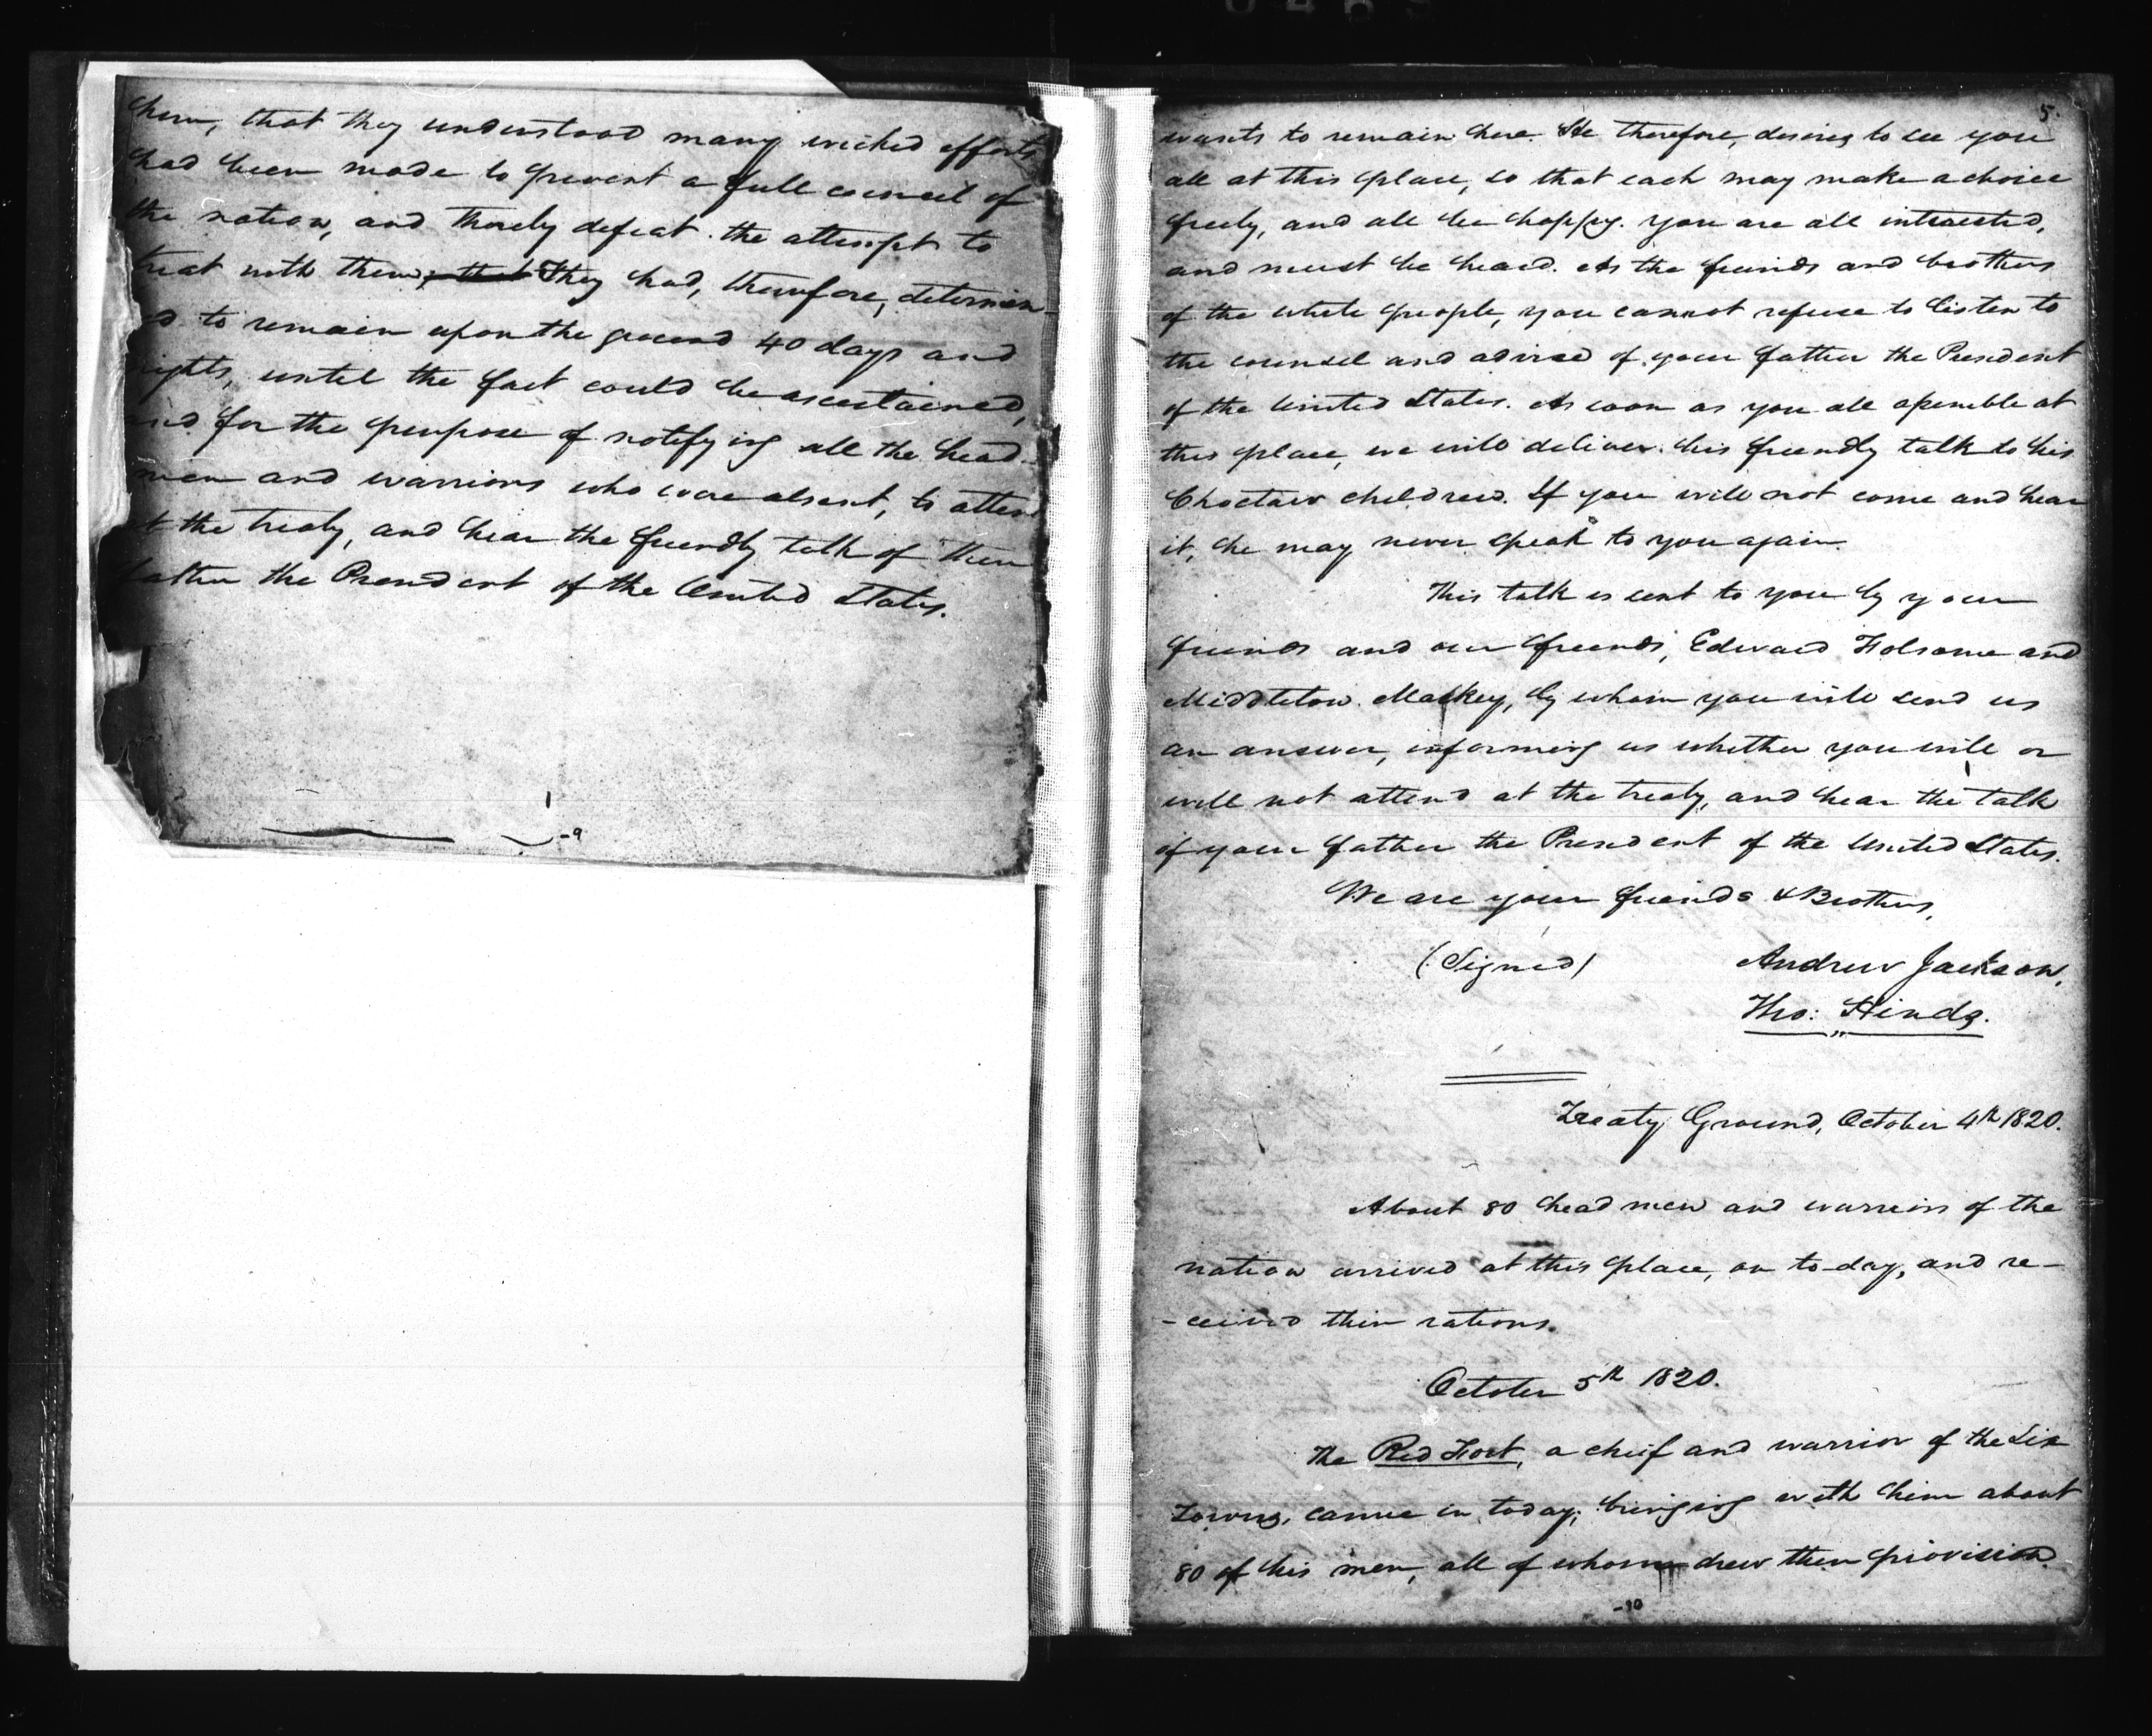 them, that they understood many wicked efforts
had been made to prevent a full council of
the nation, and thereby defeat the attempt to
treat with them; that They had, therefore, determin-
ed to remain upon the ground 40 days and
nights, until the fact could be ascertained,
and for the purpose of notifying all the head-
men and warriors who were absent, to attend
at the treaty, and hear the friendly talk of their
father the President of the United States.
-9
5.
wants to remain here. He therefore, desires to see you
all at this place, so that each may make a choice
freely, and all be happy. You are all intraested,
and must be heard. As the friends and brothers
of the white people, you cannot refuse to listen to
the counsel and advice of your father the President
of the United States. As soon as you all assemble at
this place, we will deliver his friendly talk to his
Choctaw children. If you will not come and hear
it, he may never speak to you again.
This talk is sent to you by your
friends and our friends, Edward Folsome and
Middleton Mackey, by whom you will send us
an answer, informing us whether you will or
will not attend at the treaty, and hear the talk
of your father the President of the United States.
We are your friends & Brothers,
(Signed) Andrew Jackson,
Tho: Hinds.
Treaty Ground, October 4th 1820.
About 80 head men and warriors of the
nation arrived at this place, on to-day, and re-
-ceived their rations.
October 5th 1820.
The Red Fort, a chief and warrior of the Six
Towns, came in today; bringing with him about
80 of his men, all of whom drew their provision.
-10